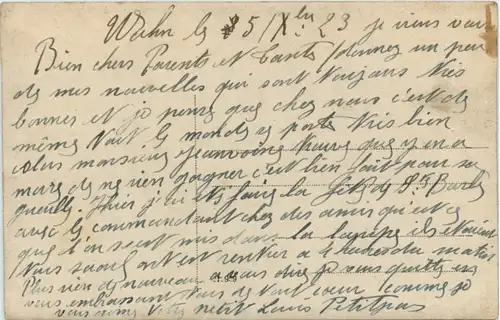 Wahn le 5/Xbre 23 je viens vous
Bien chers Parents et Tante donnez un peu
de mes nouvelles qui sont toujours très
bonnes et je pense que chez nous c'est de
même tout le monde se porte très bien
alors monsieur que y en a
mare de ne rien gagner c'est bien fait pour sa
gueulle. Hier j'ai été faire la fête de Ste Barbe
avec le commandant chez des amis qui est ce
que l'on s'est mis dans la ils étaient
tous saouls ont est rentrer a 4 heures du matin
Plus rien de nouveau a vous dire je vous quitte en
vous embrassant tous de tout cœur comme je
vous aime Votre petit Louis Petitpas